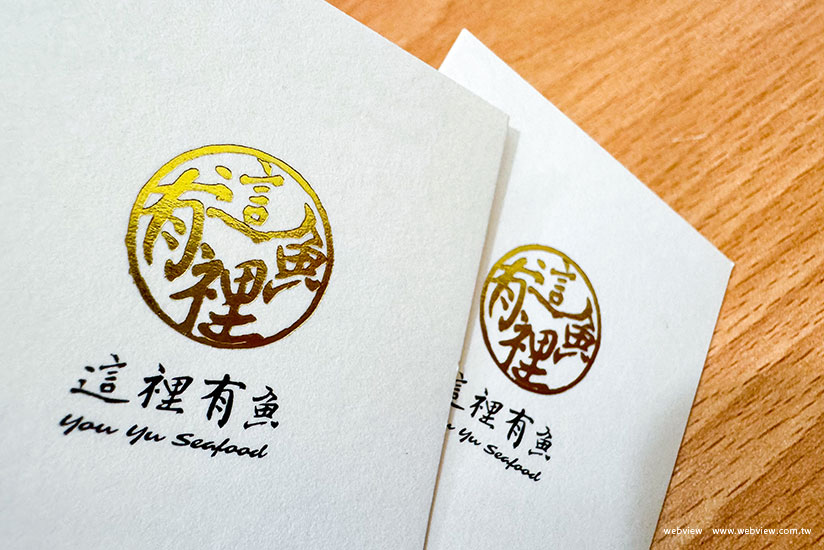 這裡有魚
這裡有魚
You Yu Seafood
這裡有魚
這裡有魚
You Yu Seafood
webview www.webview.com.tw